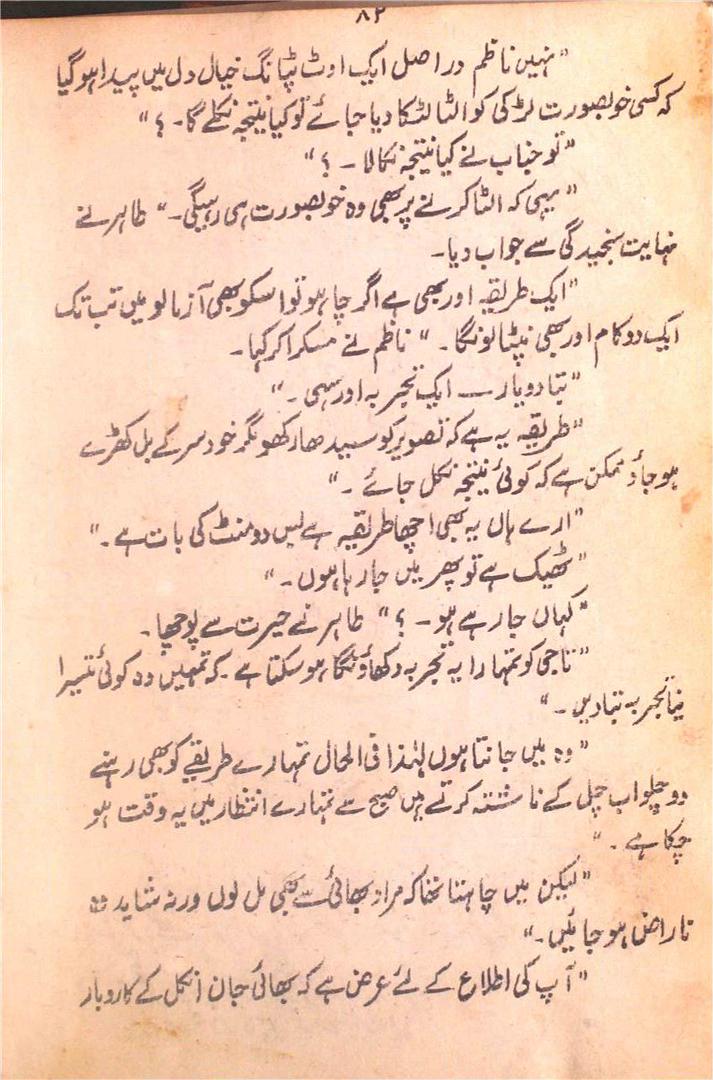 ۸۲
"نہیں ناظم دراصل ایک اوٹ پٹانگ خیال دل میں پیدا ہوگیا
کہ کسی خوبصورت لڑکی کو الٹا لٹکا دیا جائے تو کیا نتیجہ نکلے گا۔ ؟"
"تو جناب نے کیا نتیجہ نکالا ۔ ؟"
"یہی کہ الٹا کرنے پر بھی وہ خوبصورت ہی رہیگی۔" طاہر نے
نہایت سنجیدگی سے جواب دیا۔
"ایک طریقہ اور بھی ہے اگر چاہو تو اسکو بھی آزمالو میں تب تک
ایک دو کام اور بھی نپٹا لونگا۔" ناظم نے مسکرا کر کہا۔
"بتا دو یار ــــ ایک تجربہ اور سہی ۔"
"طریقہ یہ ہے کہ تصویر کو سیدھا رکھو مگر خود سر کے بل کھڑے
ہو جاؤ ممکن ہے کہ کوئی نتیجہ نکل جائے ۔"
"ارے ہاں یہ بھی اچھا طریقہ ہے بس دو منٹ کی بات ہے ۔"
"ٹھیک ہے تو پھر میں جا رہا ہوں ۔"
"کہاں جا رہے ہو ۔ ؟" طاہر نے حیرت سے پوچھا۔
"ناجی کو تمہارا یہ تجربہ دکھاؤنگا ہو سکتا ہے ۔ کہ تمہیں وہ کوئی تیسرا
نیا تجربہ بتا دیں ۔"
"وہ میں جانتا ہوں لہٰذا فی الحال تمہارے طریقے کو بھی رہنے
دو چلو اب چل کے ناشتہ کرتے ہیں صبح سے تمہارے انتظار میں یہ وقت ہو
چکا ہے ۔"
"لیکن میں چاہتا تھا کہ مراد بھائی سے بھی مل لوں ورنہ شاید وہ
ناراض ہو جائیں ۔"
"آپ کی اطلاع کے لئے عرض ہے کہ بھائی جان انکل کے کاروبار